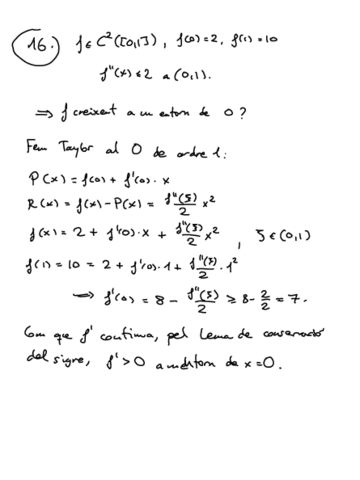 16. f ∈ C²([0,1]), f(0)=2, f(1)=10
f''(x) ≤ 2 a (0,1).
⇒ f creixent a un entorn de 0?
Fem Taylor al 0 de ordre 1:
P(x) = f(0) + f'(0)·x
R(x) = f(x) - P(x) = f''(ξ)/2 x²
f(x) = 2 + f'(0)·x + f''(ξ)/2 x² , ξ ∈ (0,1)
f(1) = 10 = 2 + f'(0)·1 + f''(ξ)/2 · 1²
⟶ f'(0) = 8 - f''(ξ)/2 ≥ 8 - 2/2 = 7.
Com que f' contínua, pel Lema de conservació
del signe, f' > 0 a un entorn de x=0.